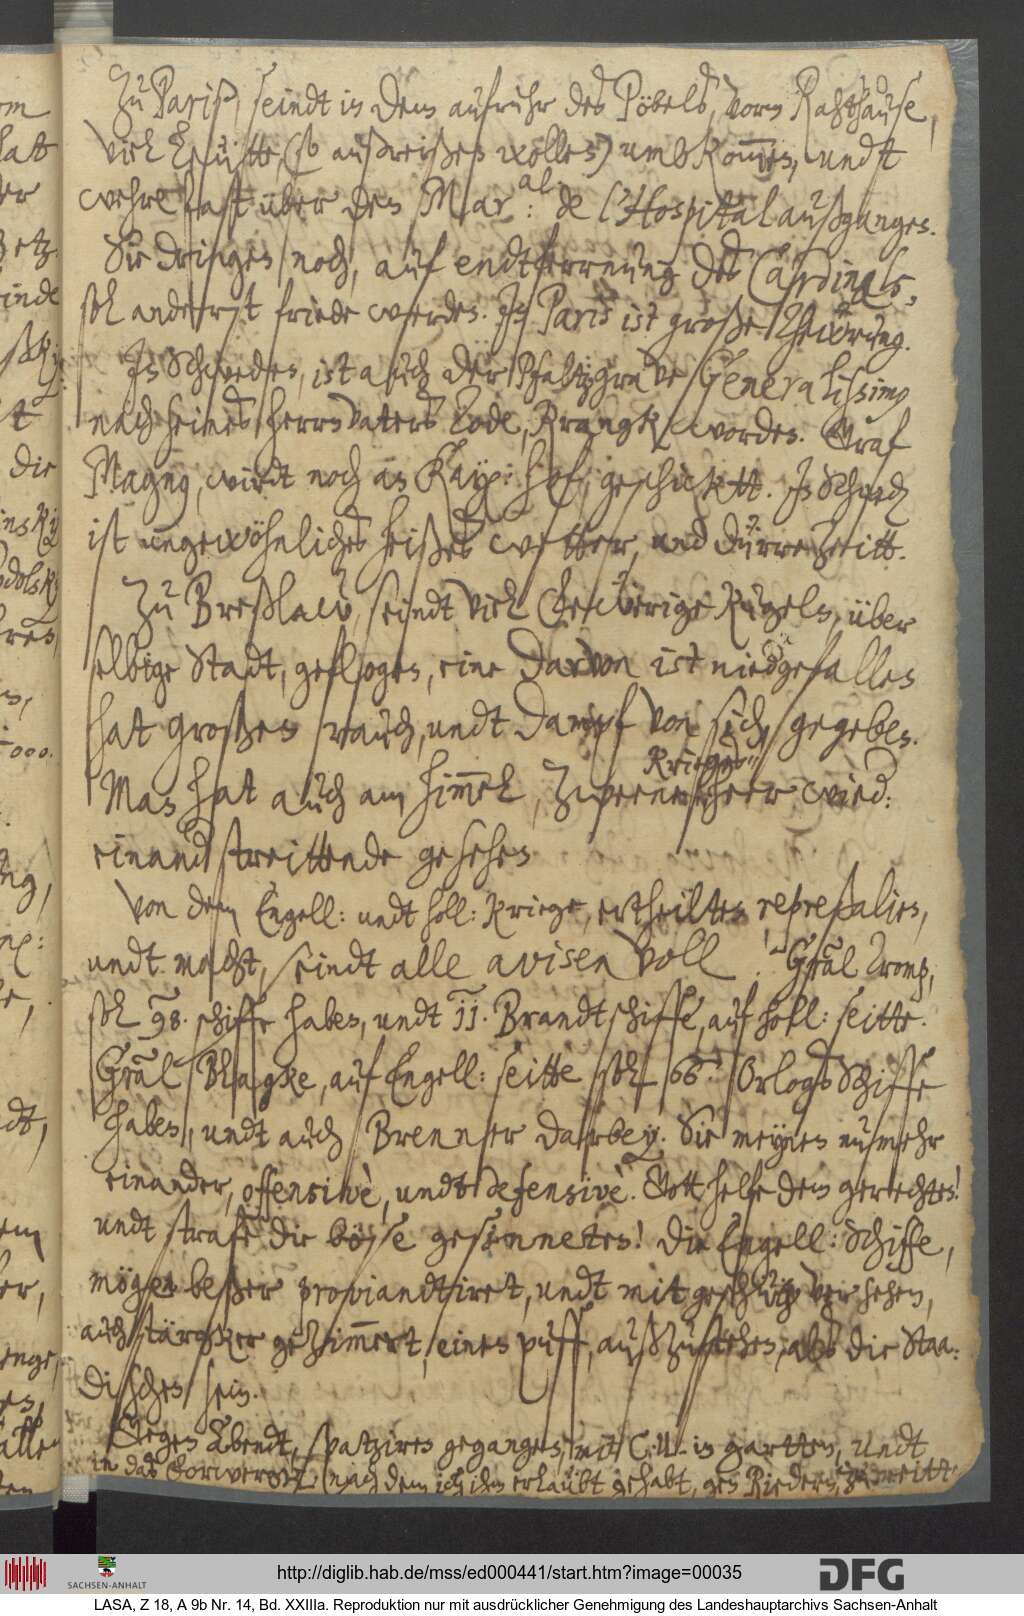 Zu Pariß, seindt in dem aufruhr des Pöbels, vorm Rahthause,
viel Leütte, (so außreißen wollen) umbkommen, undt
wehre fast über den Mar:al de l'Hospital außgangen.
Sie dringen noch, auf endtfernung des Cardinals,
soll anderst friede werden. In Paris ist große Theẅrung.
In Schweden, ist auch der Pfaltzgrave Generalissimy
nach seines herrnvaters Tode, kranck worden. Graf
Magny, wirdt noch an Kay: hof, geschicktt. In Schwed
ist ungewöhnliches heißes wetter, und dürre zeitt.
Zu Breßlaw, seindt viel fewerige kugeln, über
selbige Stadt, geflogen, eine darvon ist niedgefallen
hat großen rauch, undt dampf von sich, gegeben.
Man hat auch am himmel, zweene Kriegsheer wied:
einand streittende gesehen
Von dem Engell: undt holl: kriege, ertheilten repreßalien,
undt macht, seindt alle avisen voll. Gräl Tromp,
soll 98. schiffe haben, undt 11. Brandtschiffe, auf holl: seitte.
Gräl Blagke, auf Engell: seitte soll 66. Orlogs Schiffe
haben, undt auch Brenner darbey. Sie meynen numehr
einander, offensivè, undt defensivè. Gott helfe dem gerechten!
undt strafe die böse gesinneten! Die Engell: Schiffe,
mögen beßer proviandtiret, undt mit geschütz versehen,
auch stärcker gezimmert, einen puff, außzustehen, als die Staa:
dischen sein.
Gegen Abendt, spatziren gegangen, mit C. U. in gartten, undt
in das Forwerck (nach dem ich ihm erlaubt gehabt, gen Riedern, zu reitt
http://diglib.hab.de/mss/ed000441/start.htm?image=00035
SACHSEN-ANHALT
DFG
LASA, Z 18, A 9b Nr. 14, Bd. XXIIIa. Reproduktion nur mit ausdrücklicher Genehmigung des Landeshauptarchivs Sachsen-Anhalt